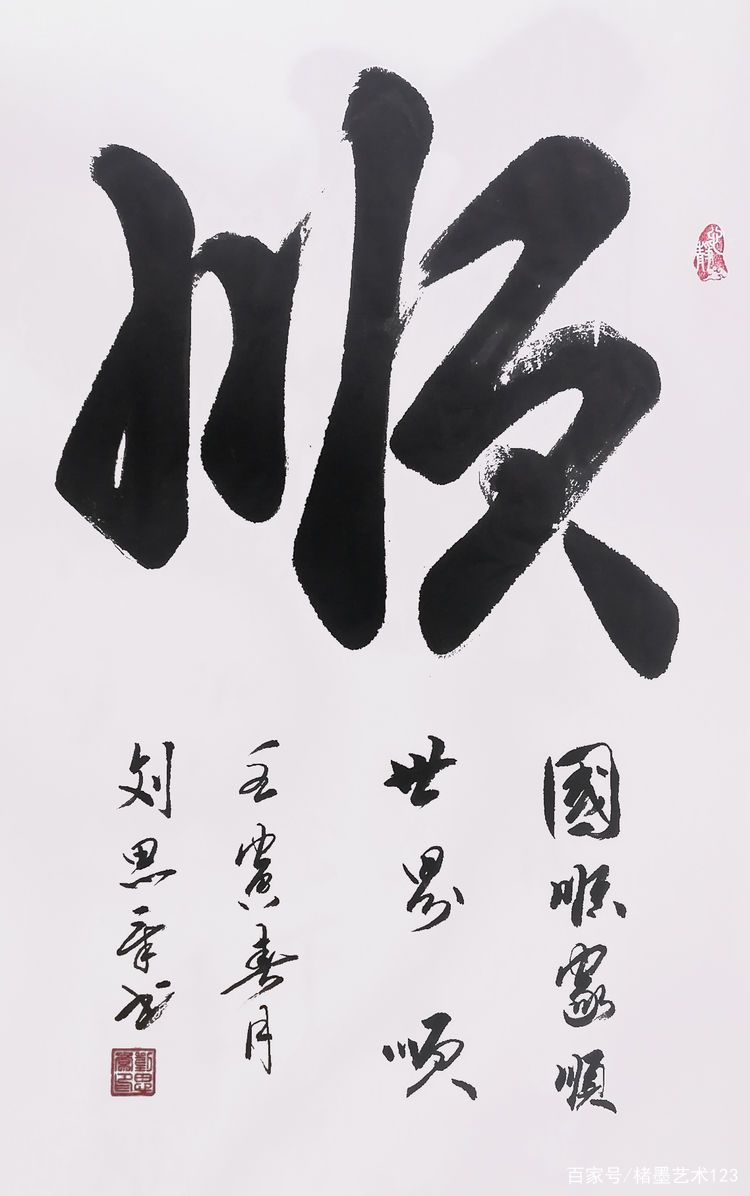 順
國順家順
世界順
壬寅春月
刘思书
百家号/楮墨艺术123